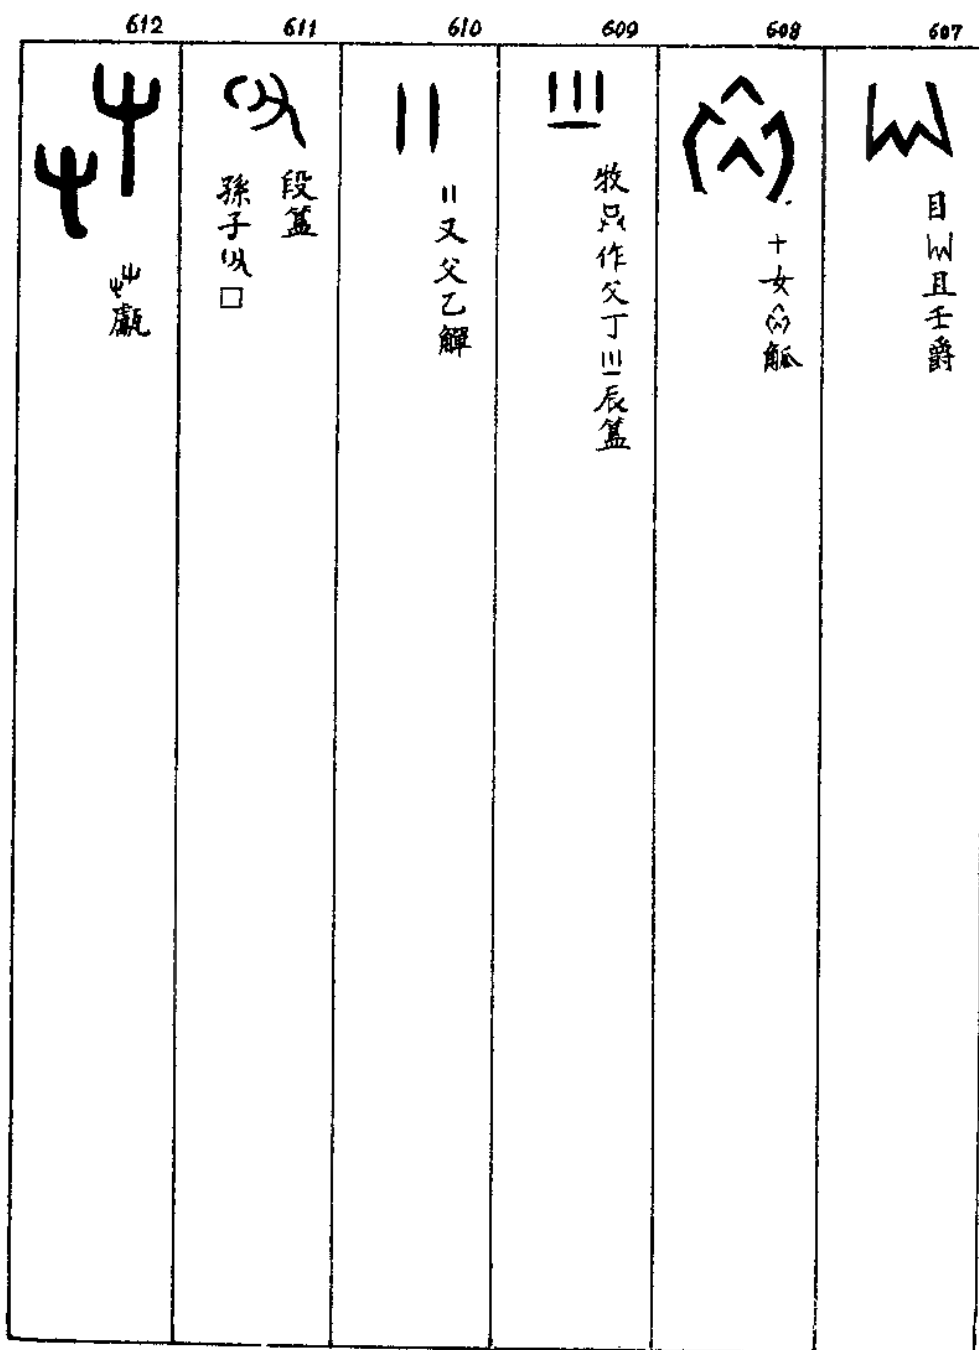 607
目且壬爵
608
十女觚
609
牧作父丁辰簋
610
〢又父乙觶
611
段簋
孫子□
612
甗